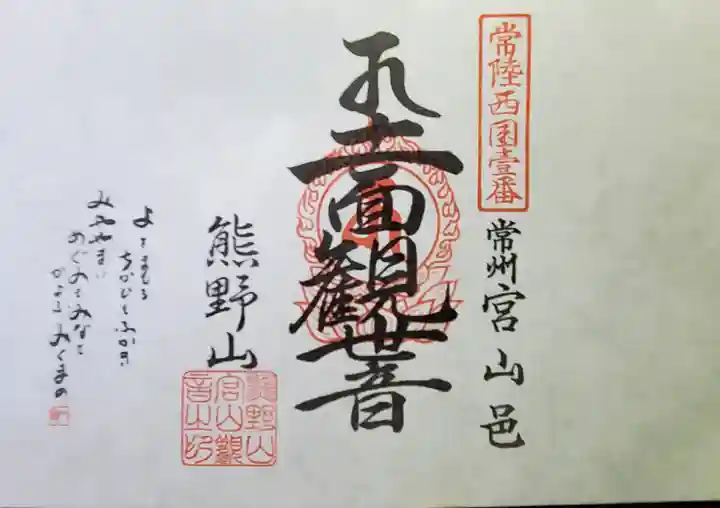 常陸西国壹番
常州宮山邑
十一面觀世音
熊野山
熊野山
宮山觀
音之印
よをまもる
ちかひもふかき
みややまに
めぐみをみなと
かよふみくまの